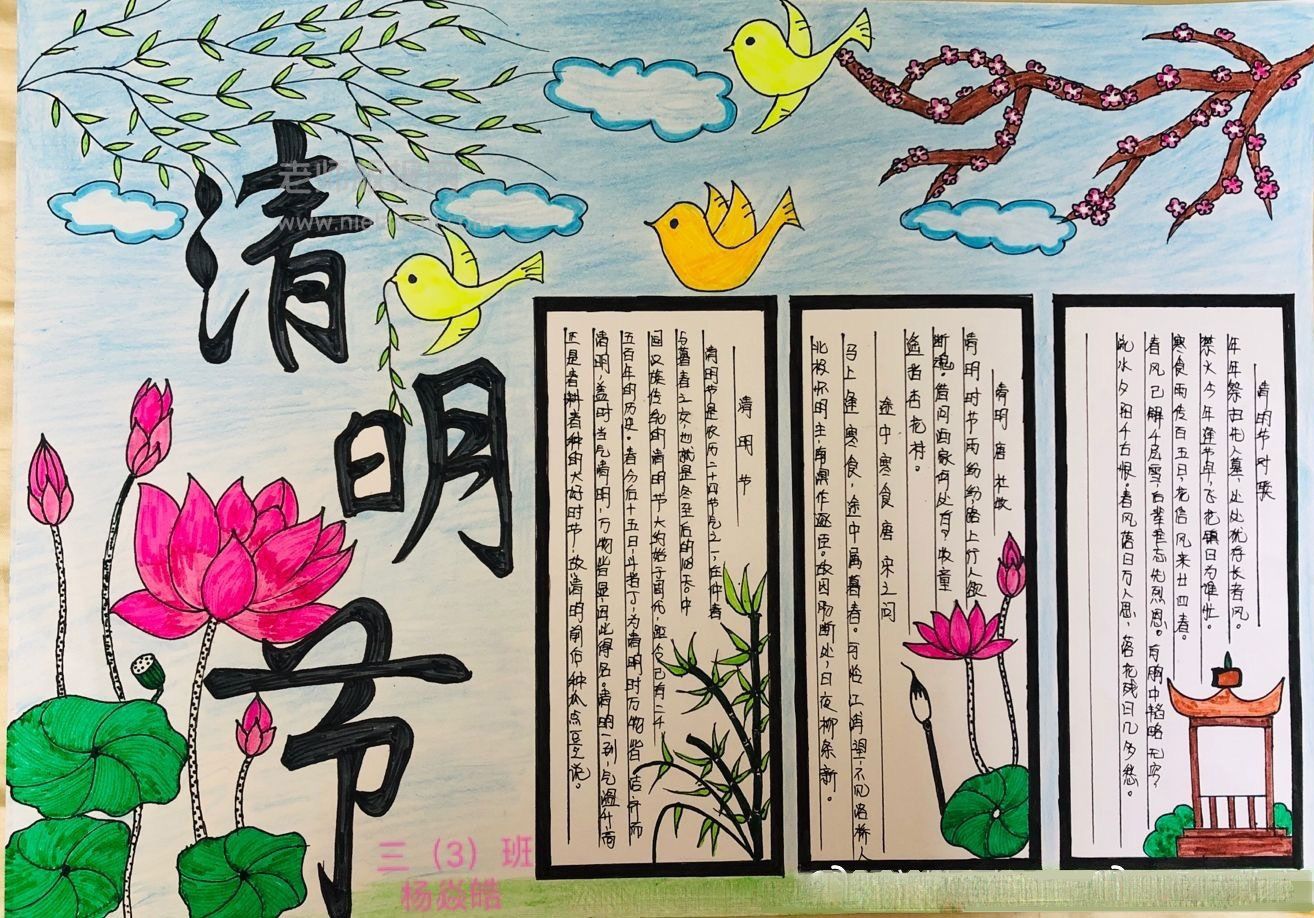 清明节
清明节
清明节是农历二十四节气之一,在仲春
与暮春之交,也就是冬至后的108天。中
国汉族传统的清明节大约始于周代,距今已有二千
五百年的历史。春分后十五日,斗指丁,为清明,时万物皆洁齐而
清明,盖时当气清明,万物皆显因此得名。清明一到,气温升高
正是春耕春种的大好时节,故清明前后种瓜点豆之说。
清明 唐 杜牧
清明时节雨纷纷路上行人欲
断魂。借问酒家何处有?牧童
遥指杏花村。
途中寒食 唐 宋之问
马上逢寒食,途中属暮春。可怜江浦望,不见洛桥人
北极怀明主,南溟作逐臣。故园肠断处,日夜柳条新。
清明节对联
年年祭扫先人墓,处处犹存长者风。
禁火今年逢节早,飞花镇日为谁忙。
寒食雨传百五日,花信风来廿四春。
春风已解千层雪,后辈难忘先烈恩。有胸中韬略无穷,
流水夕阳千古恨。春风落日万人思,落花残日几多愁。
三（3）班
杨焱皓